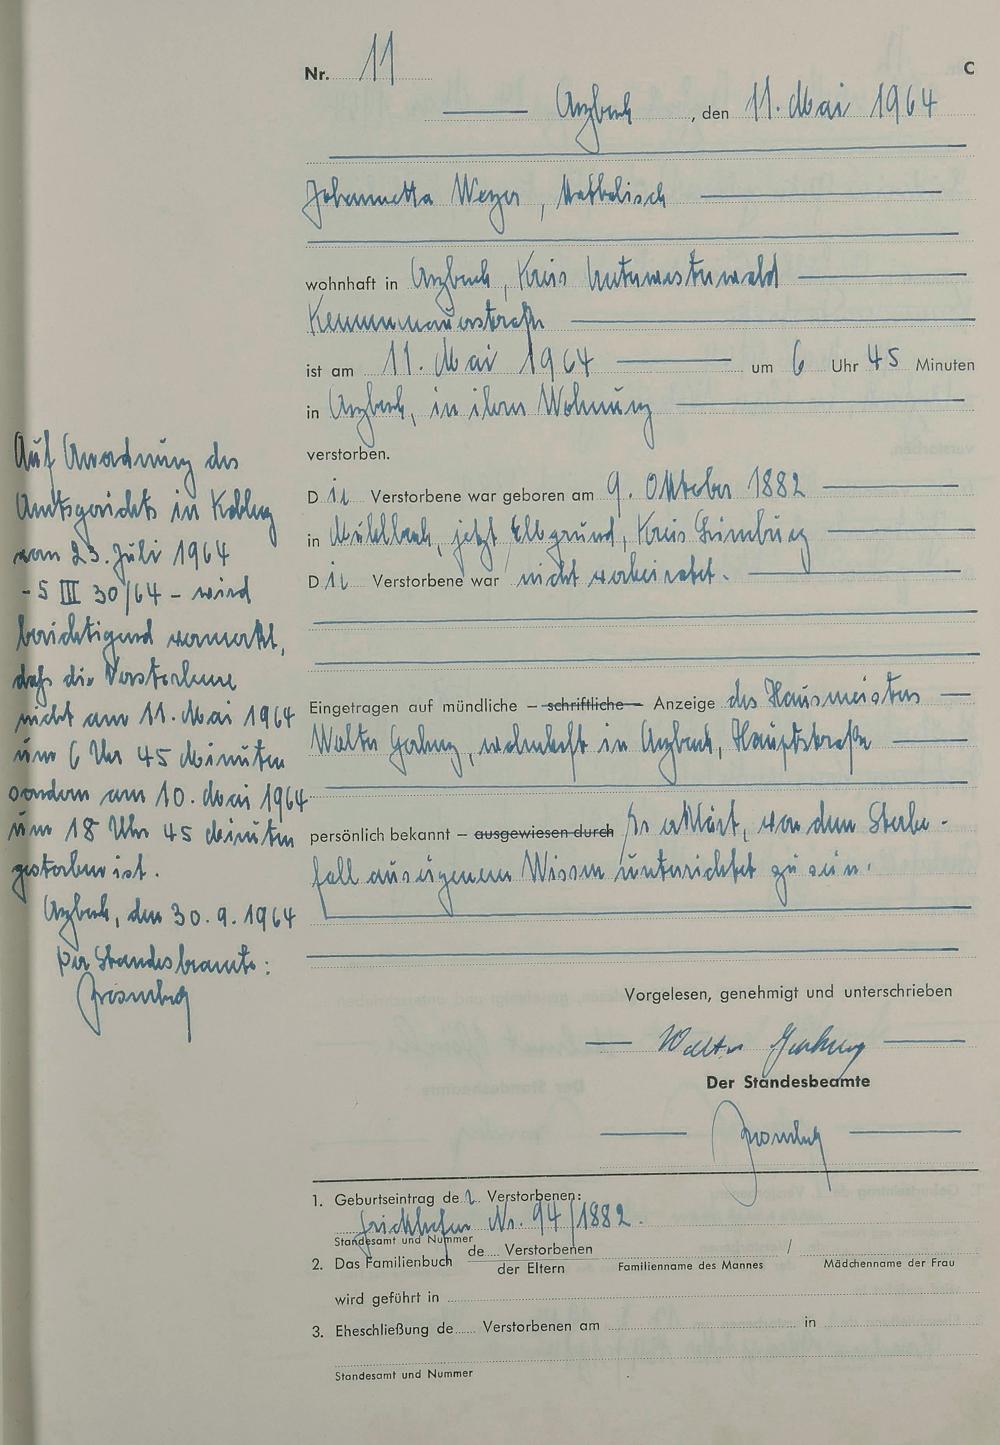 Nr. 11
C
Arzbach, den 11. Mai 1964
Johannetta Weyer, katholisch
wohnhaft in Arzbach, Kreis Unterwesterwald
Kemmenauerstraße
ist am 11. Mai 1964 um 6 Uhr 45 Minuten
in Arzbach, in ihrer Wohnung
verstorben.
Die Verstorbene war geboren am 9. Oktober 1882
in Mühlbach, jetzt Elbgrund, Kreis Limburg
Die Verstorbene war nicht verheiratet.
Eingetragen auf mündliche – schriftliche – Anzeige des Hausmeisters
Walter, wohnhaft in Arzbach, Hauptstraße
persönlich bekannt – ausgewiesen durch Er erklärt, von dem Sterbe-
fall aus eigenem Wissen unterrichtet zu sein.
Auf Anordnung des
Amtsgerichts in Koblenz
vom 23. Juli 1964
- 5 III 30/64 - wird
berichtigend vermerkt,
daß die Verstorbene
nicht am 11. Mai 1964
um 6 Uhr 45 Minuten
sondern am 10. Mai 1964
um 18 Uhr 45 Minuten
gestorben ist.
Arzbach, den 30.9.1964
Der Standesbeamte:
Vorgelesen, genehmigt und unterschrieben
Walter
Der Standesbeamte
1. Geburtseintrag der Verstorbenen:
Frickhofen Nr. 94/1882.
Standesamt und Nummer
2. Das Familienbuch de Verstorbenen /
der Eltern Familienname des Mannes Mädchenname der Frau
wird geführt in
3. Eheschließung de Verstorbenen am in
Standesamt und Nummer